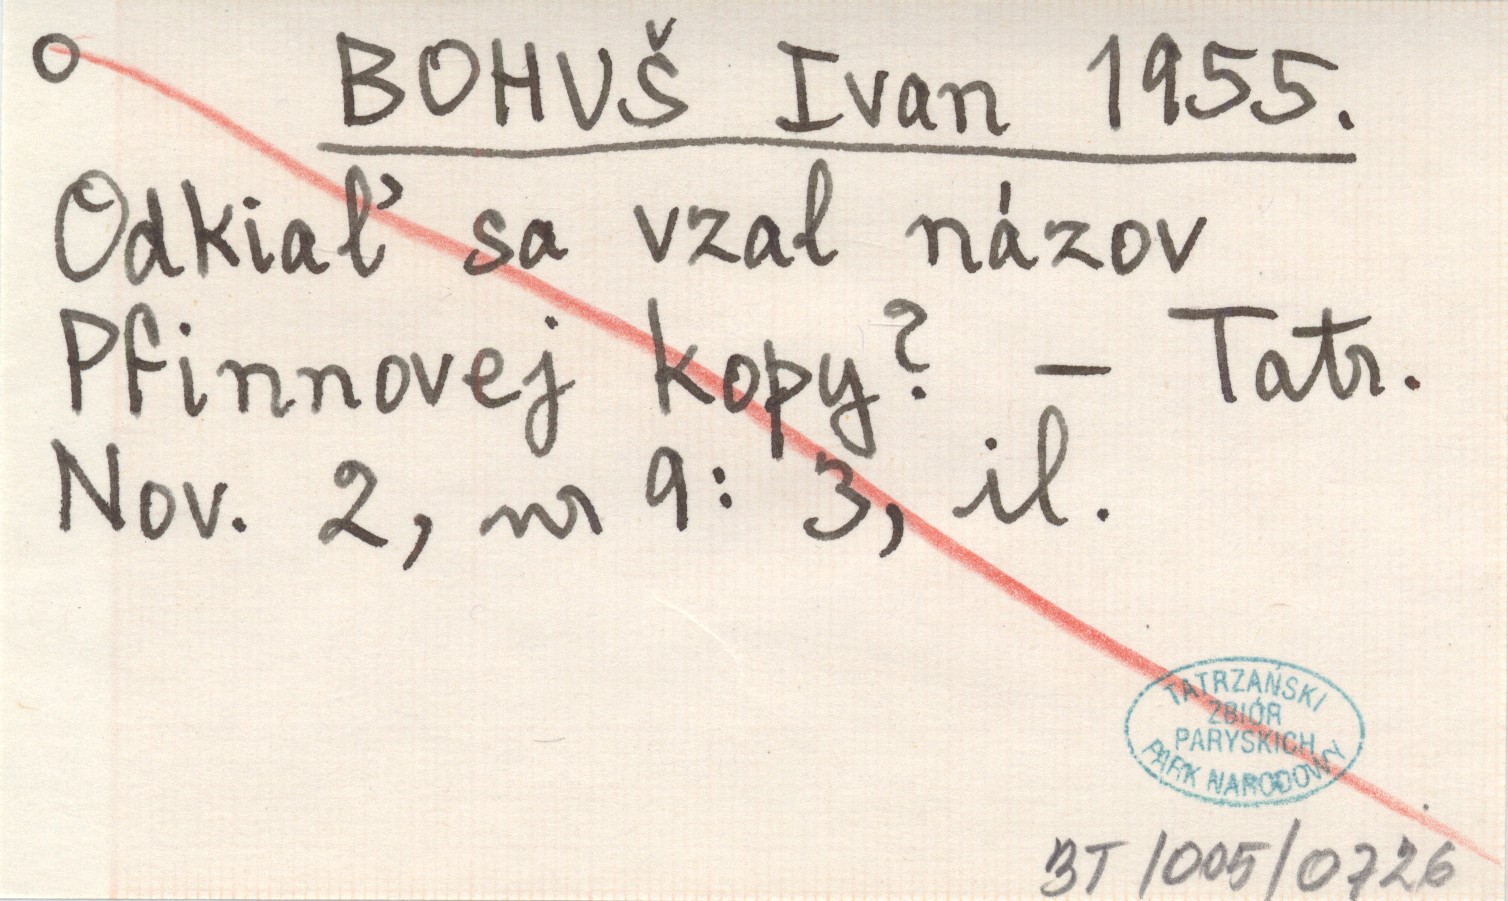 O BOHUŠ Ivan 1955.
Odkiaľ sa vzal názov
Pfinnovej kopy? – Tatr.
Nov. 2, nr 9: 3, il.
TATRZAŃSKI
ZBIÓR
PARYSKICH
PARK NARODOWY
BT/005/0726